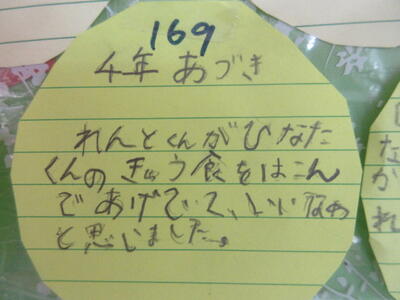 169
4年 あづき
れんとくんがひなた
くんのきゅう食をはこん
であげていて、いいなぁ
と思いました。
な
か
れ